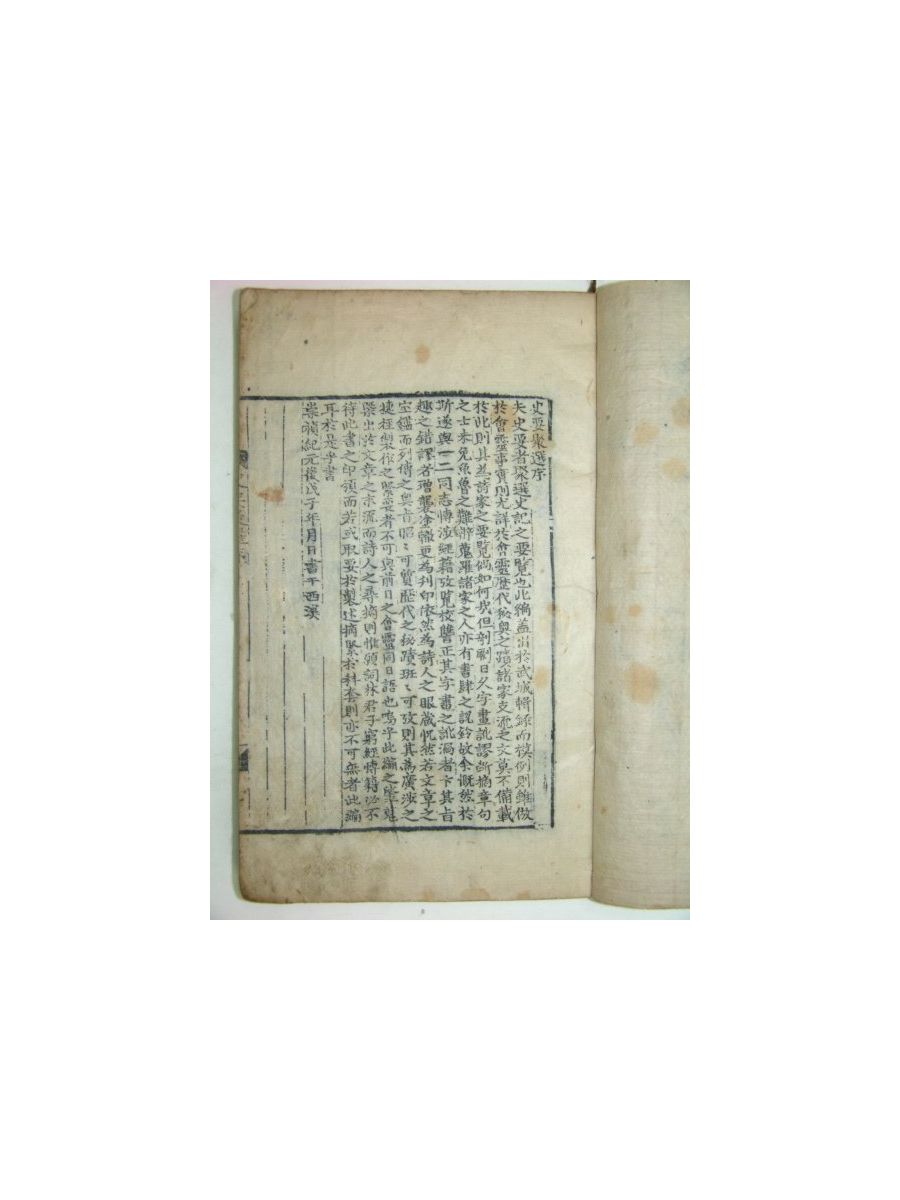 史要聚選序
夫史要者聚選史記之要覽也此編蓋出於武城輯錄而模例則雖倣
於會靈事實則尤詳於會靈歷代秘奧之蹟諸家支流之文莫不備載
於此則其爲諸家之要覽倘如何哉但剞劂日久字畫訛謬斷摘章句
之士未免魚魯之難辨蒐羅諸家之人亦有書肆之詅故余慨然於
斯遂與一二同志博涉經籍攷覽校讐正其字畫之訛漏者卞其旨
趣之錯謬者增襲塗轍更爲刊印依然爲詩人之眼藏怳然若文章之
寶鑑而列傳之奧旨昭〻可質歷代之秘蹟班〻可攷則其爲廣涉之
捷徑製作之緊要者不可與前日之會靈同日語也嗚乎此編之
出於文章之末流而詩人之尋摘則惟願詞林君子窮經博籍必不
待此書之印頒而若或取要於製述摘緊於科套則亦不可無者此編
耳於是乎書
崇禎紀元後戊子年月日書于西溪